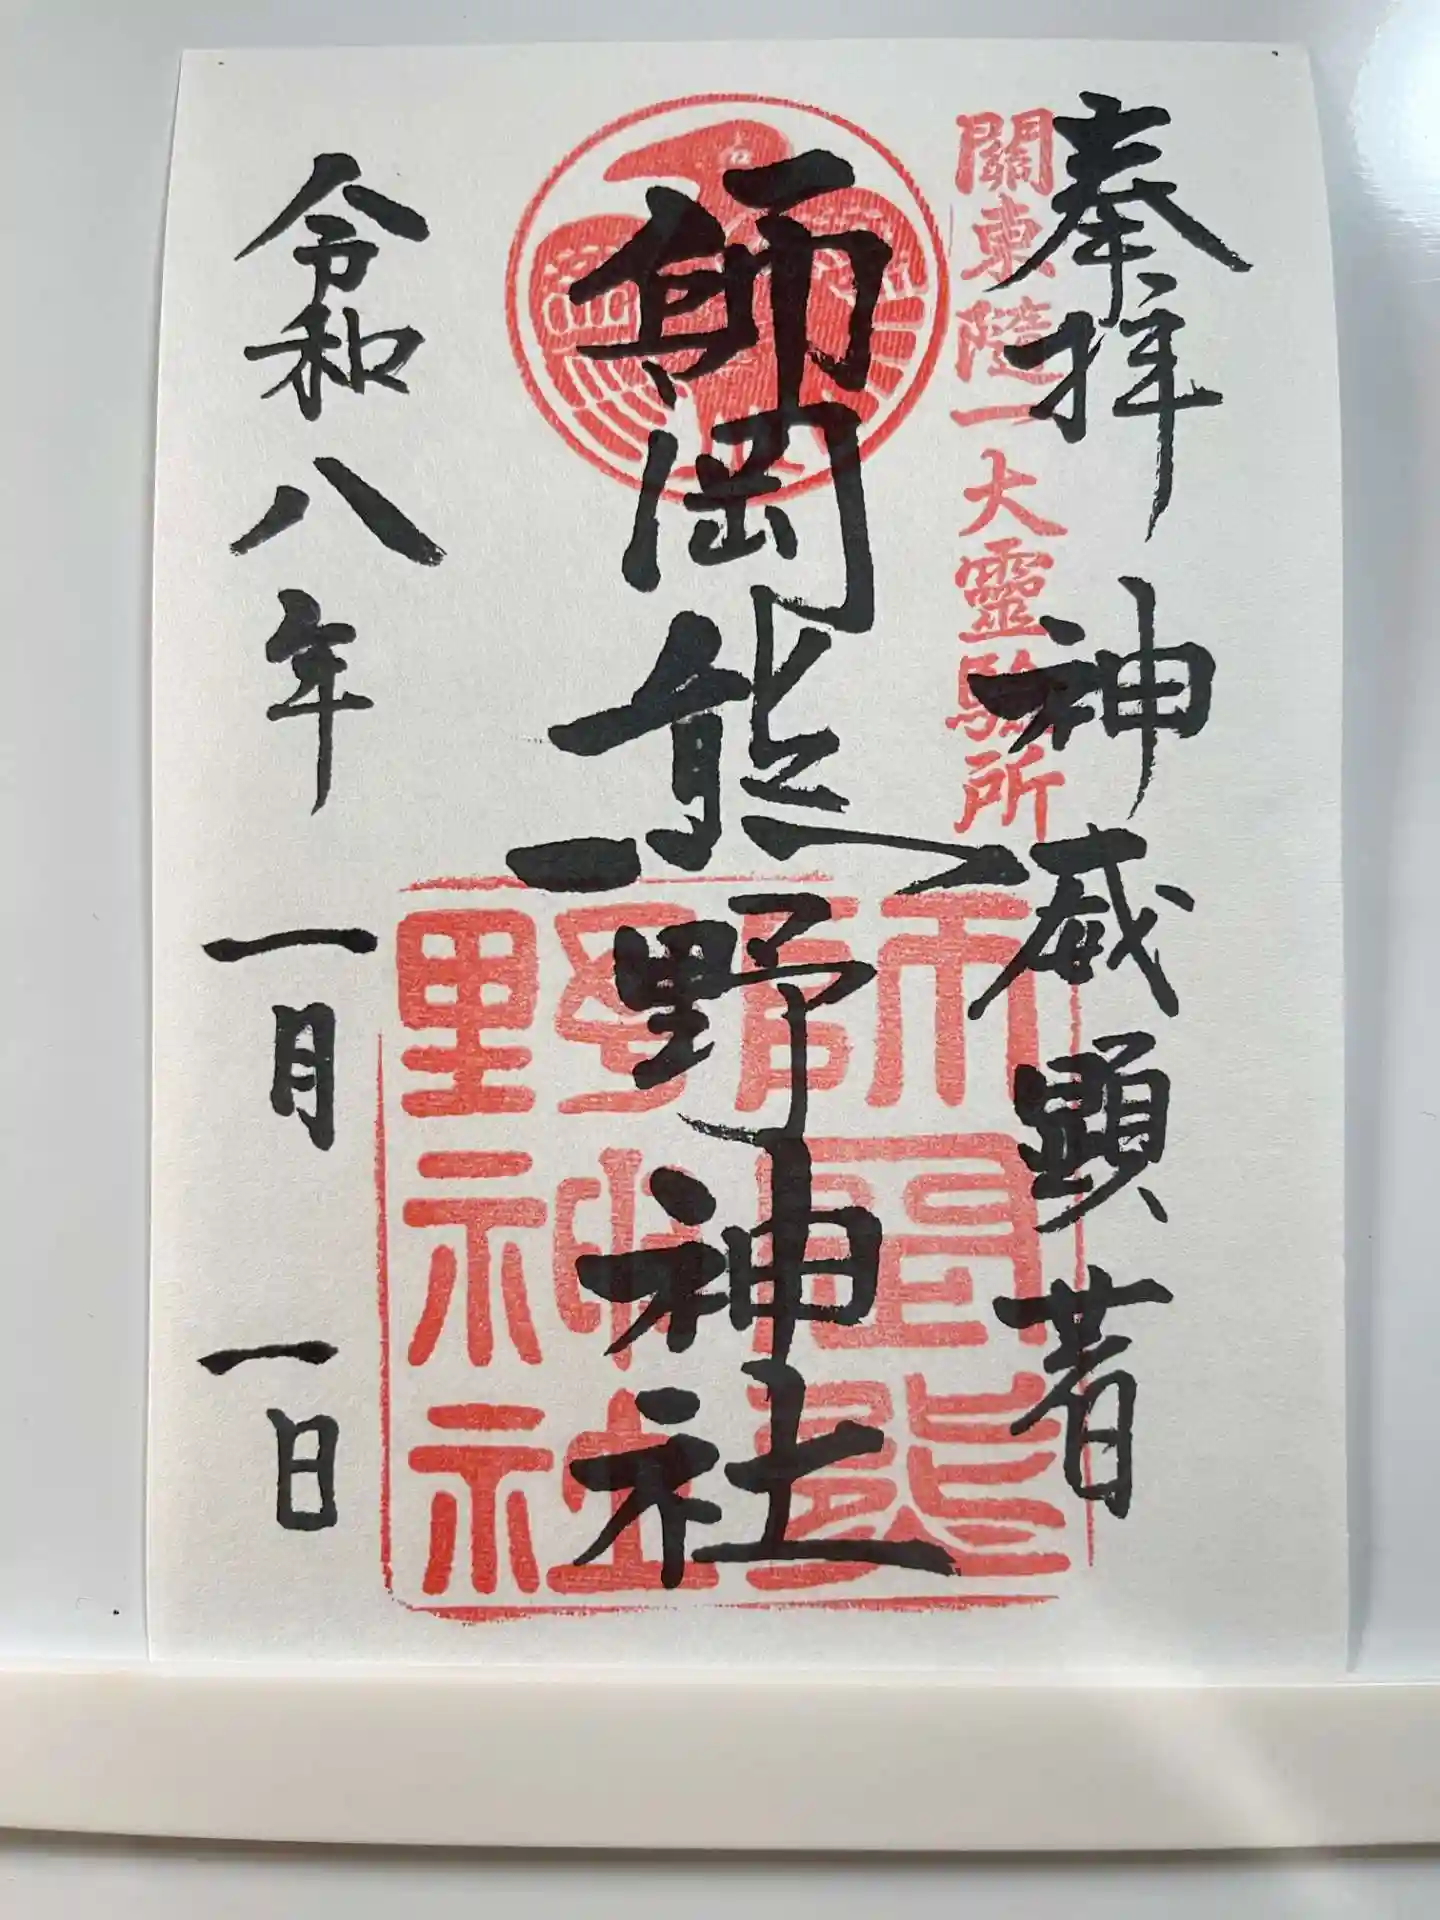 奉拝 神威顕著
關東隨一大靈驗所
師岡熊野神社
師岡熊野神社
令和八年一月一日